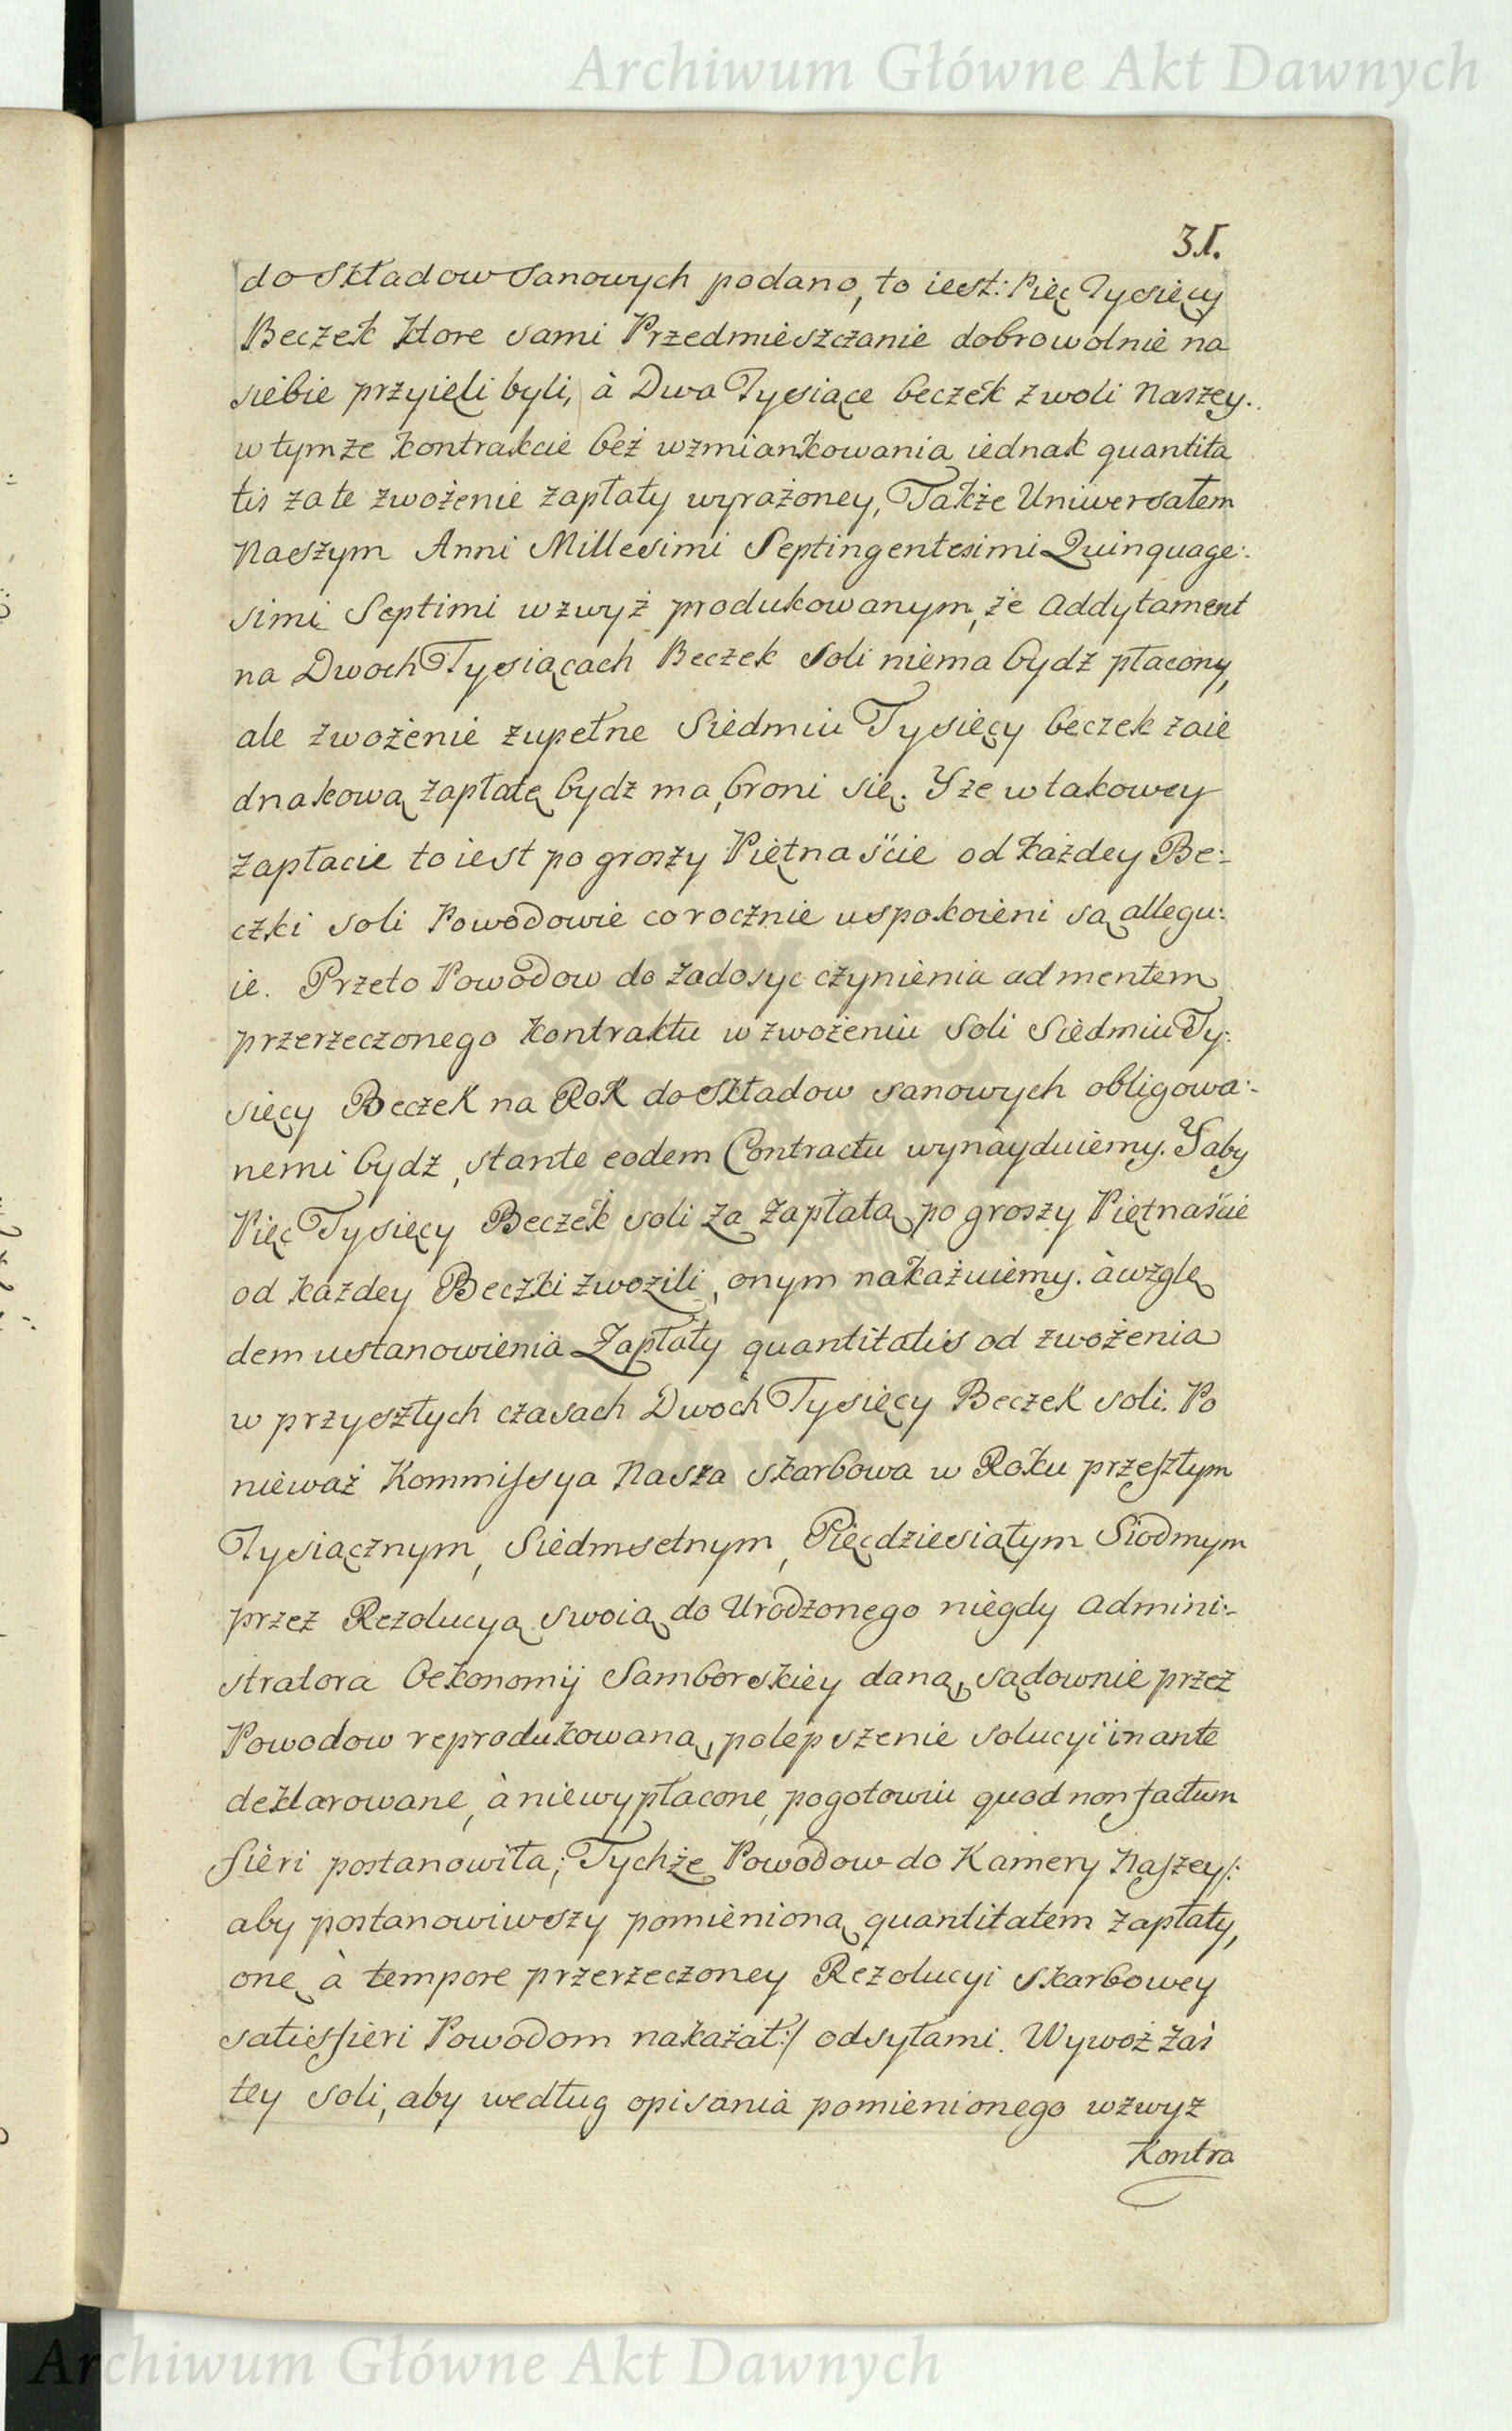 Archiwum Główne Akt Dawnych
31.
do Składow Sanowych podano, to iest: Pięc Tysięcy
Beczek ktore sami Przedmieszczanie dobrowolnie na
siebie przyieli byli, à Dwa Tysiące beczek z woli Naszey.
w tymże kontrakcie beż wzmiankowania iednak quantita
tis za te zwożenie zapłaty wyrażoney, Także Uniwersałem
Naszym Anni Millesimi Septingentesimi Quinquage:
simi Septimi wzwyż produkowanym, że Addytament
na Dwoch Tysiącach Beczek Soli niema bydź płacony,
ale zwożenie zupełne Siedmiu Tysięcy beczek za ie
dnakową zapłatę bydź ma, broni się. Y że w takowey
zapłacie to iest po groszy Piętnaście od każdey Be:
czki soli Powodowie corocznie uspokoieni są allegu:
ie. Przeto Powodow do zadosyc czynienia ad mentem
przerzeczonego kontraktu w zwożeniu Soli Siedmiu Ty:
sięcy Beczek na Rok do Składow sanowych obligowa:
nemi bydź, stante eodem Contractu wynayduiemy. Y aby
Pięc Tysięcy Beczek soli za zapłatą po groszy Piętnaście
od każdey Beczki zwozili, onym nakażuiemy. à wzglę
dem ustanowienia Zapłaty quantitatis od zwożenia
w przyszłych czasach Dwoch Tysięcy Beczek soli. Po
nieważ Kommissya Nasza skarbowa w Roku przeszłym
Tysiącznym, Siedmsetnym, Pięcdziesiątym Siodmym
przez Rezolucyą swoią do Urodzonego niegdy Admini:
stratora Oekonomij Samborskiey daną, sądownie przez
Powodow reprodukowaną, polepszenie solucyi in ante
deklarowane, à niewypłacone, pogotowiu quod non factum
fieri postanowiła; Tychże Powodow do Kamery Naszey /:
aby postanowiwszy pomienioną quantitatem zapłaty,
onę à tempore przerzeczoney Rezolucyi skarbowey
satisfieri Powodom nakażał :/ odsyłami. Wywoż zaś
tey soli, aby według opisania pomienionego wzwyż
Kontra
Archiwum Główne Akt Dawnych